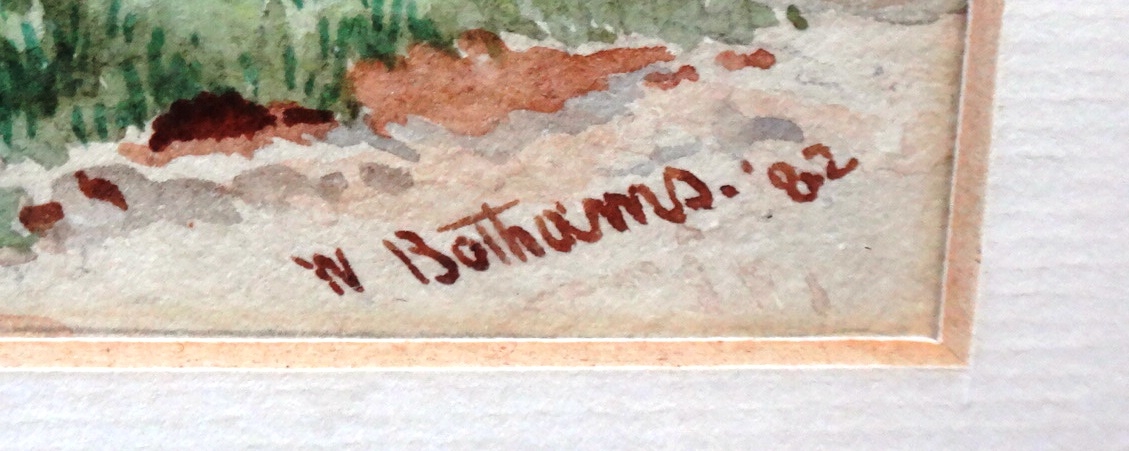 W Bothams. '82